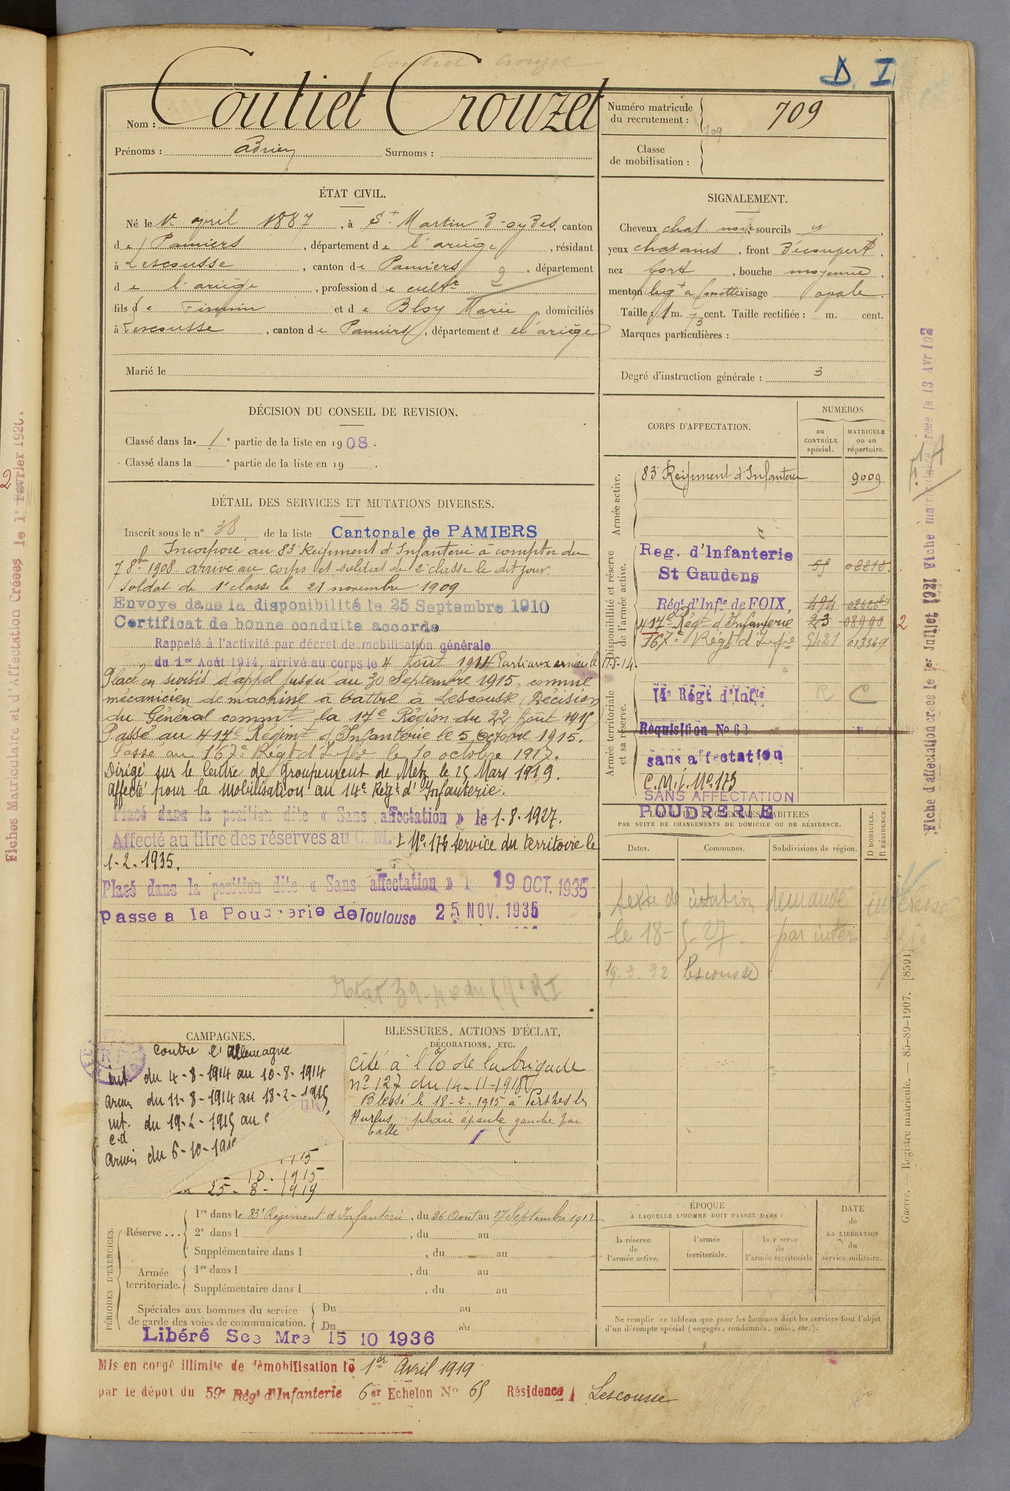 D. I
Nom : Coutiet Crouzet
Prénoms : Adrien Surnoms :
Numéro matricule du recrutement : 709
709
Classe de mobilisation :
ÉTAT CIVIL.
Né le 1er april 1887, à St Martin d'oydes, canton
de Pamiers, département de l'ariège, résidant
à Lescousse, canton de Pamiers, département
de l'ariège, profession de cultr
fils de Firmin et de Bloy Marie, domiciliés
à Lescousse, canton de Pamiers, département de l'ariège
Marié le
SIGNALEMENT.
Cheveux chat. noir sourcils y
yeux chatains, front découvert,
nez fort, bouche moyenne,
menton visage ovale.
Taille : 1 m. 73 cent. Taille rectifiée : m. cent.
Marques particulières :
Degré d'instruction générale : 3
DÉCISION DU CONSEIL DE REVISION.
Classé dans la 1e partie de la liste en 1908.
Classé dans la e partie de la liste en 19 .
DÉTAIL DES SERVICES ET MUTATIONS DIVERSES.
Inscrit sous le n° 38 de la liste Cantonale de PAMIERS
Incorporé au 83e Régiment d'Infanterie à compter du
7 8bre 1908. arrivé au corps et soldat de 2e classe le dit jour.
Soldat de 1e classe le 21 novembre 1909
Envoyé dans la disponibilité le 25 Septembre 1910
Certificat de bonne conduite accordé
Rappelé à l'activité par décret de mobilisation générale
du 1er Août 1914, arrivé au corps le 4 Août 1914 Parti aux armées le 11.8.14.
Placé en sursis d'appel jusqu'au 30 Septembre 1915, comme
mécanicien de machine à battre à Lescousse, Décision
du Général commt la 17e Région du 22 Août 1915
Passé au 414e Régimt d'Infanterie le 5 octobre 1915.
Passé au 167e Régt d'Infie le 10 octobre 1917.
Dirigé sur le Centre de Groupement de Metz le 25 Mars 1919.
Affecté pour la mobilisation au 14e Régt d'Infanterie.
Placé dans la position dite « Sans affectation » le 1.8.1927.
Affecté au titre des réserves au C.M.I No 173 service du territoire le
1-2-1935.
Placé dans la position dite « Sans affectation » 19 OCT. 1935
Passé à la Poudrerie de Toulouse 25 NOV. 1935
CORPS D'AFFECTATION.
NUMÉROS
au CONTRÔLE spécial.
MATRICULE ou au répertoire.
Armée active.
83e Régiment d'Infanterie 9009
Disponibilité et réserve de l'armée active.
Reg. d'Infanterie
St Gaudens
Régt d'Infie de FOIX,
414e Régt d'Infanterie
167e Régt d'Infie
Armée territoriale et sa réserve.
14e Régt d'Infie R C
Réquisition No 62
sans affectation
C.M.I. No 173
SANS AFFECTATION
POUDRERIE
LOCALITÉS SUCCESSIVES HABITÉES
PAR SUITE DE CHANGEMENTS DE DOMICILE OU DE RÉSIDENCE.
Dates. Communes. Subdivisions de région. D DOMICILE. R RÉSIDENCE.
le 18-5-27
19.2.32 Lescousse
CAMPAGNES.
contre l'Allemagne
int. du 4-8-1914 au 10-8-1914
armées du 11-8-1914 au 18-2-1915
int. c.d du 19-2-1915 au
armées du 6-10-191
10 - 1915
25 - 8 - 1919
BLESSURES, ACTIONS D'ÉCLAT,
DÉCORATIONS, ETC.
cité à l'o/o de la brigade
n° 127 du 14-11-1918
Blessé le 18-2-1915 à Perthes les
Hurlus plaie épaule gauche par
balle
PÉRIODES D'EXERCICES.
Réserve ...
1re dans le 83e Régiment d'Infanterie, du 26 Aout au 17 Septembre 1912
2e dans l , du au
Supplémentaire dans l , du au
Armée territoriale.
1re dans l , du au
Supplémentaire dans l , du au
Spéciales aux hommes du service de garde des voies de communication.
Du au
Du au
Libéré Sce Mre 15 10 1936
ÉPOQUE
À LAQUELLE L'HOMME DOIT PASSER DANS :
la réserve de l'armée active.
l'armée territoriale.
la réserve de l'armée territoriale
DATE de LA LIBÉRATION du service militaire.
Ne remplir ce tableau que pour les hommes dont les services font l'objet
d'un décompte spécial (engagés, condamnés, omis, etc.).
Mis en congé illimité de démobilisation le 1er Avril 1919
par le dépôt du 59e Régt d'Infanterie 6er Echelon No 65 Résidence Lescousse
Guerre. — Registre matricule. — 85-89-1907. [8591]
Fiches Matriculaire et d'Affectation Créées le 1er Février 1926.